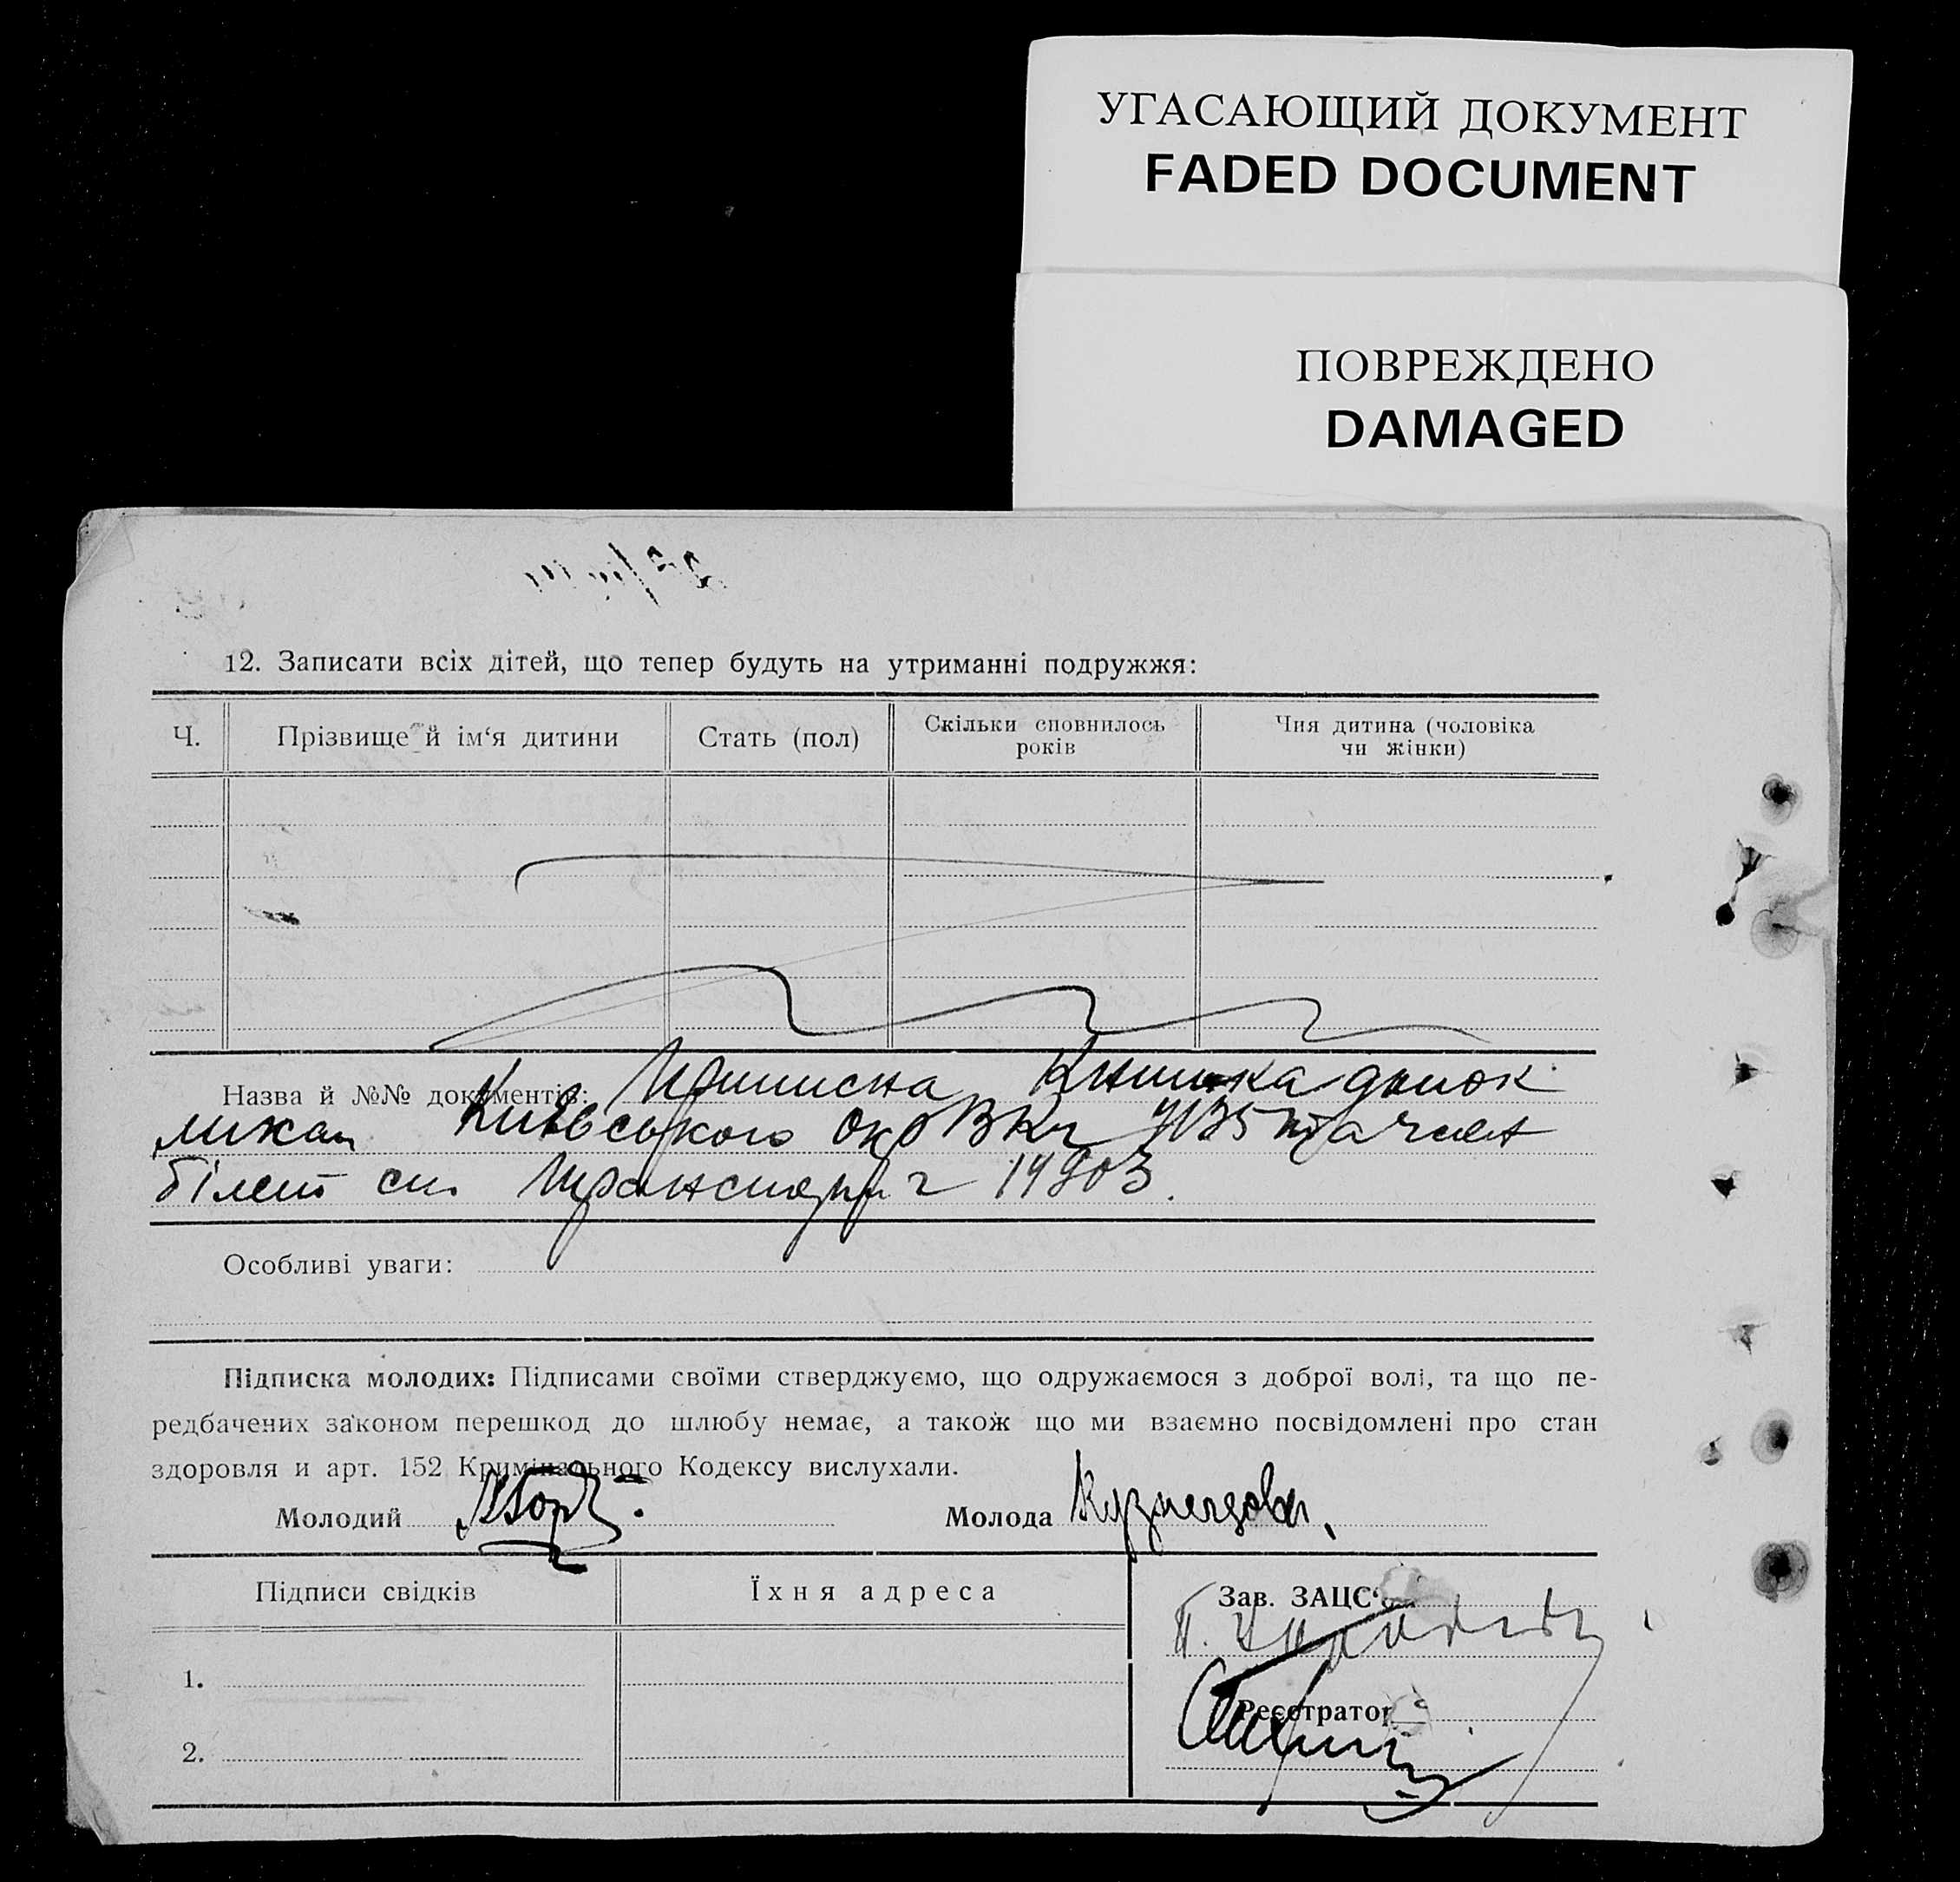 УГАСАЮЩИЙ ДОКУМЕНТ
FADED DOCUMENT
ПОВРЕЖДЕНО
DAMAGED
12. Записати всіх дітей, що тепер будуть на утриманні подружжя:
Ч.
Прізвище й ім‘я дитини
Стать (пол)
Скільки сповнилось
років
Чия дитина (чоловіка
чи жінки)
Назва й №№ документів: Приписна Книжка
Київського
білет
Особливі уваги:
Підписка молодих: Підписами своїми стверджуємо, що одружаємося з доброї волі, та що пе-
редбачених законом перешкод до шлюбу немає, а також що ми взаємно посвідомлені про стан
здоровля и арт. 152 Кримінального Кодексу вислухали.
Молодий
Молода Кузнецова
Підписи свідків
Їхня адреса
Зав. ЗАЦС‘
1.
Реєстратор
2.